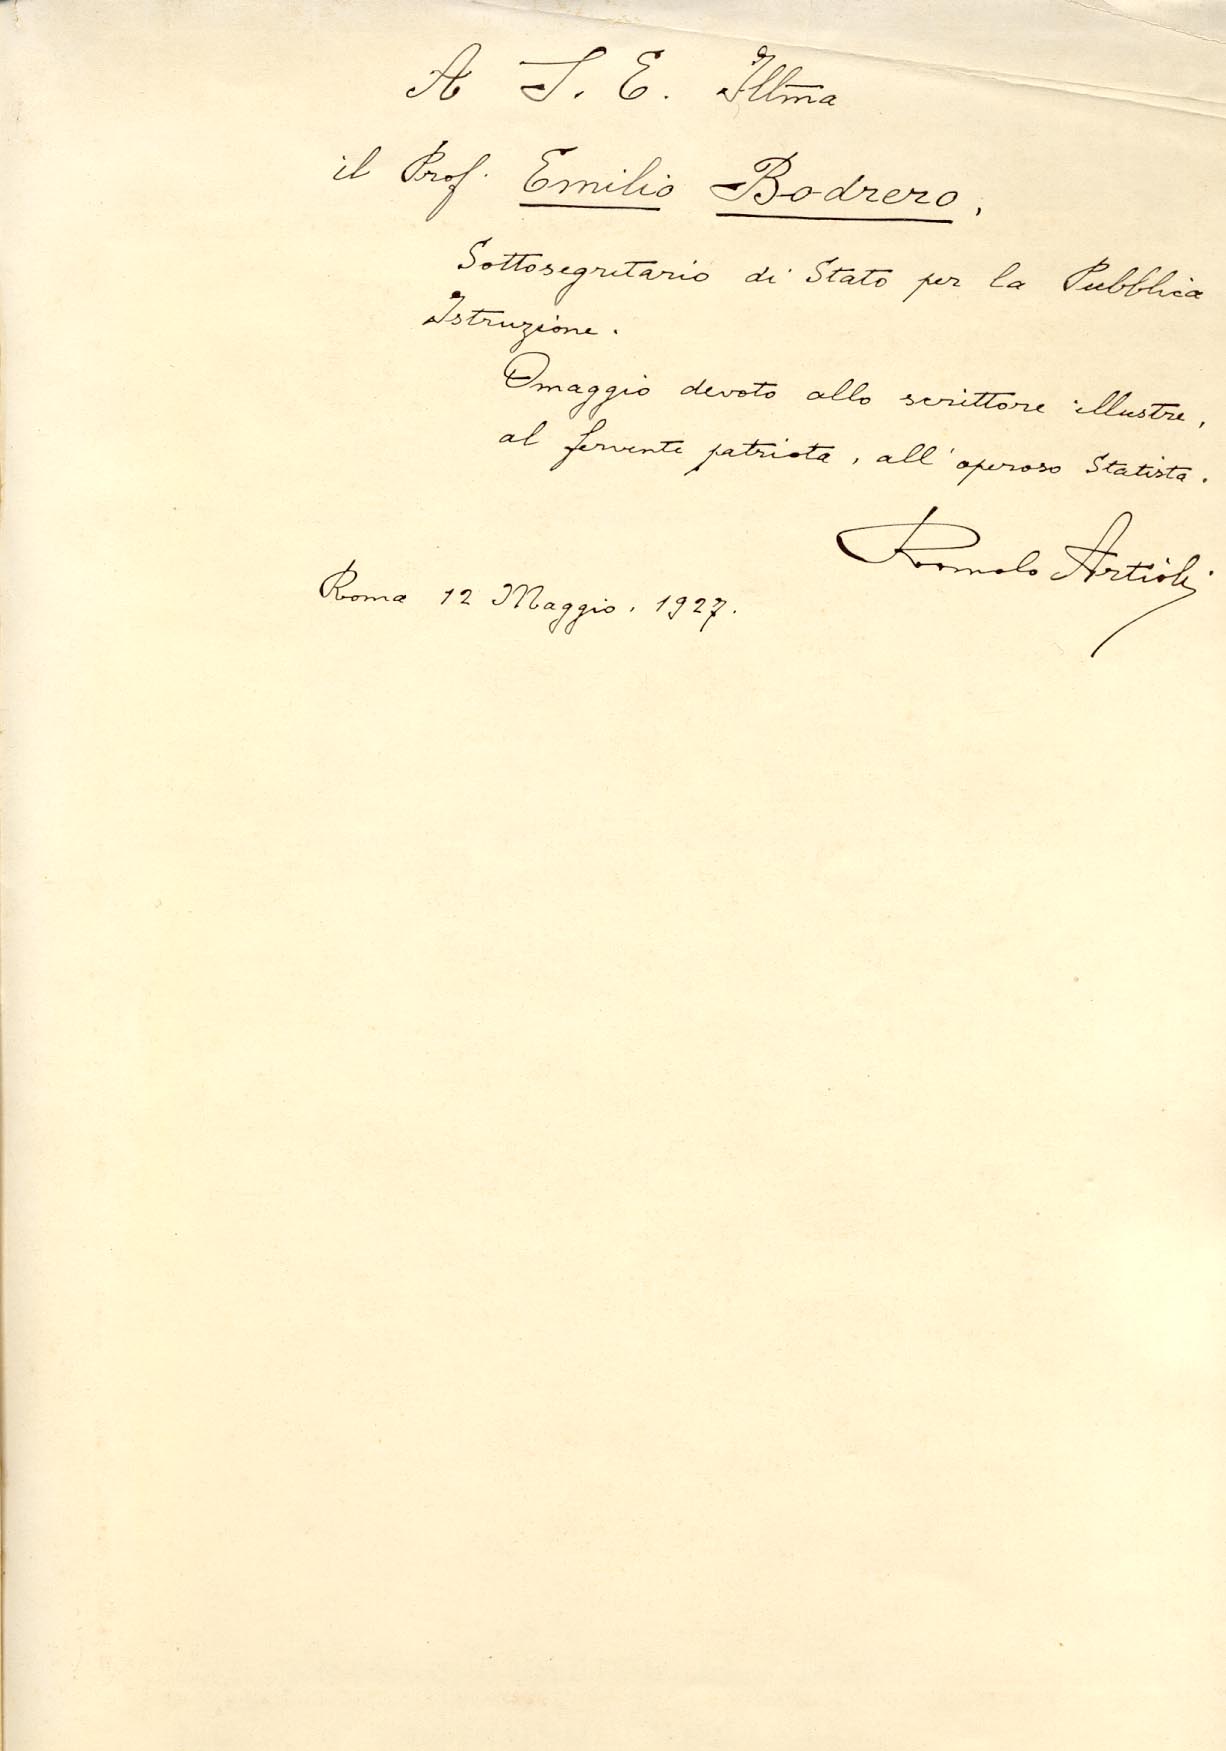 A S. E. Illma
il Prof. Emilio Bodrero,
Sottosegretario di Stato per la Pubblica
Istruzione.
Omaggio devoto allo scrittore illustre,
al fervente patriota, all'operoso Statista.
Romolo Artioli
Roma 12 Maggio. 1927.